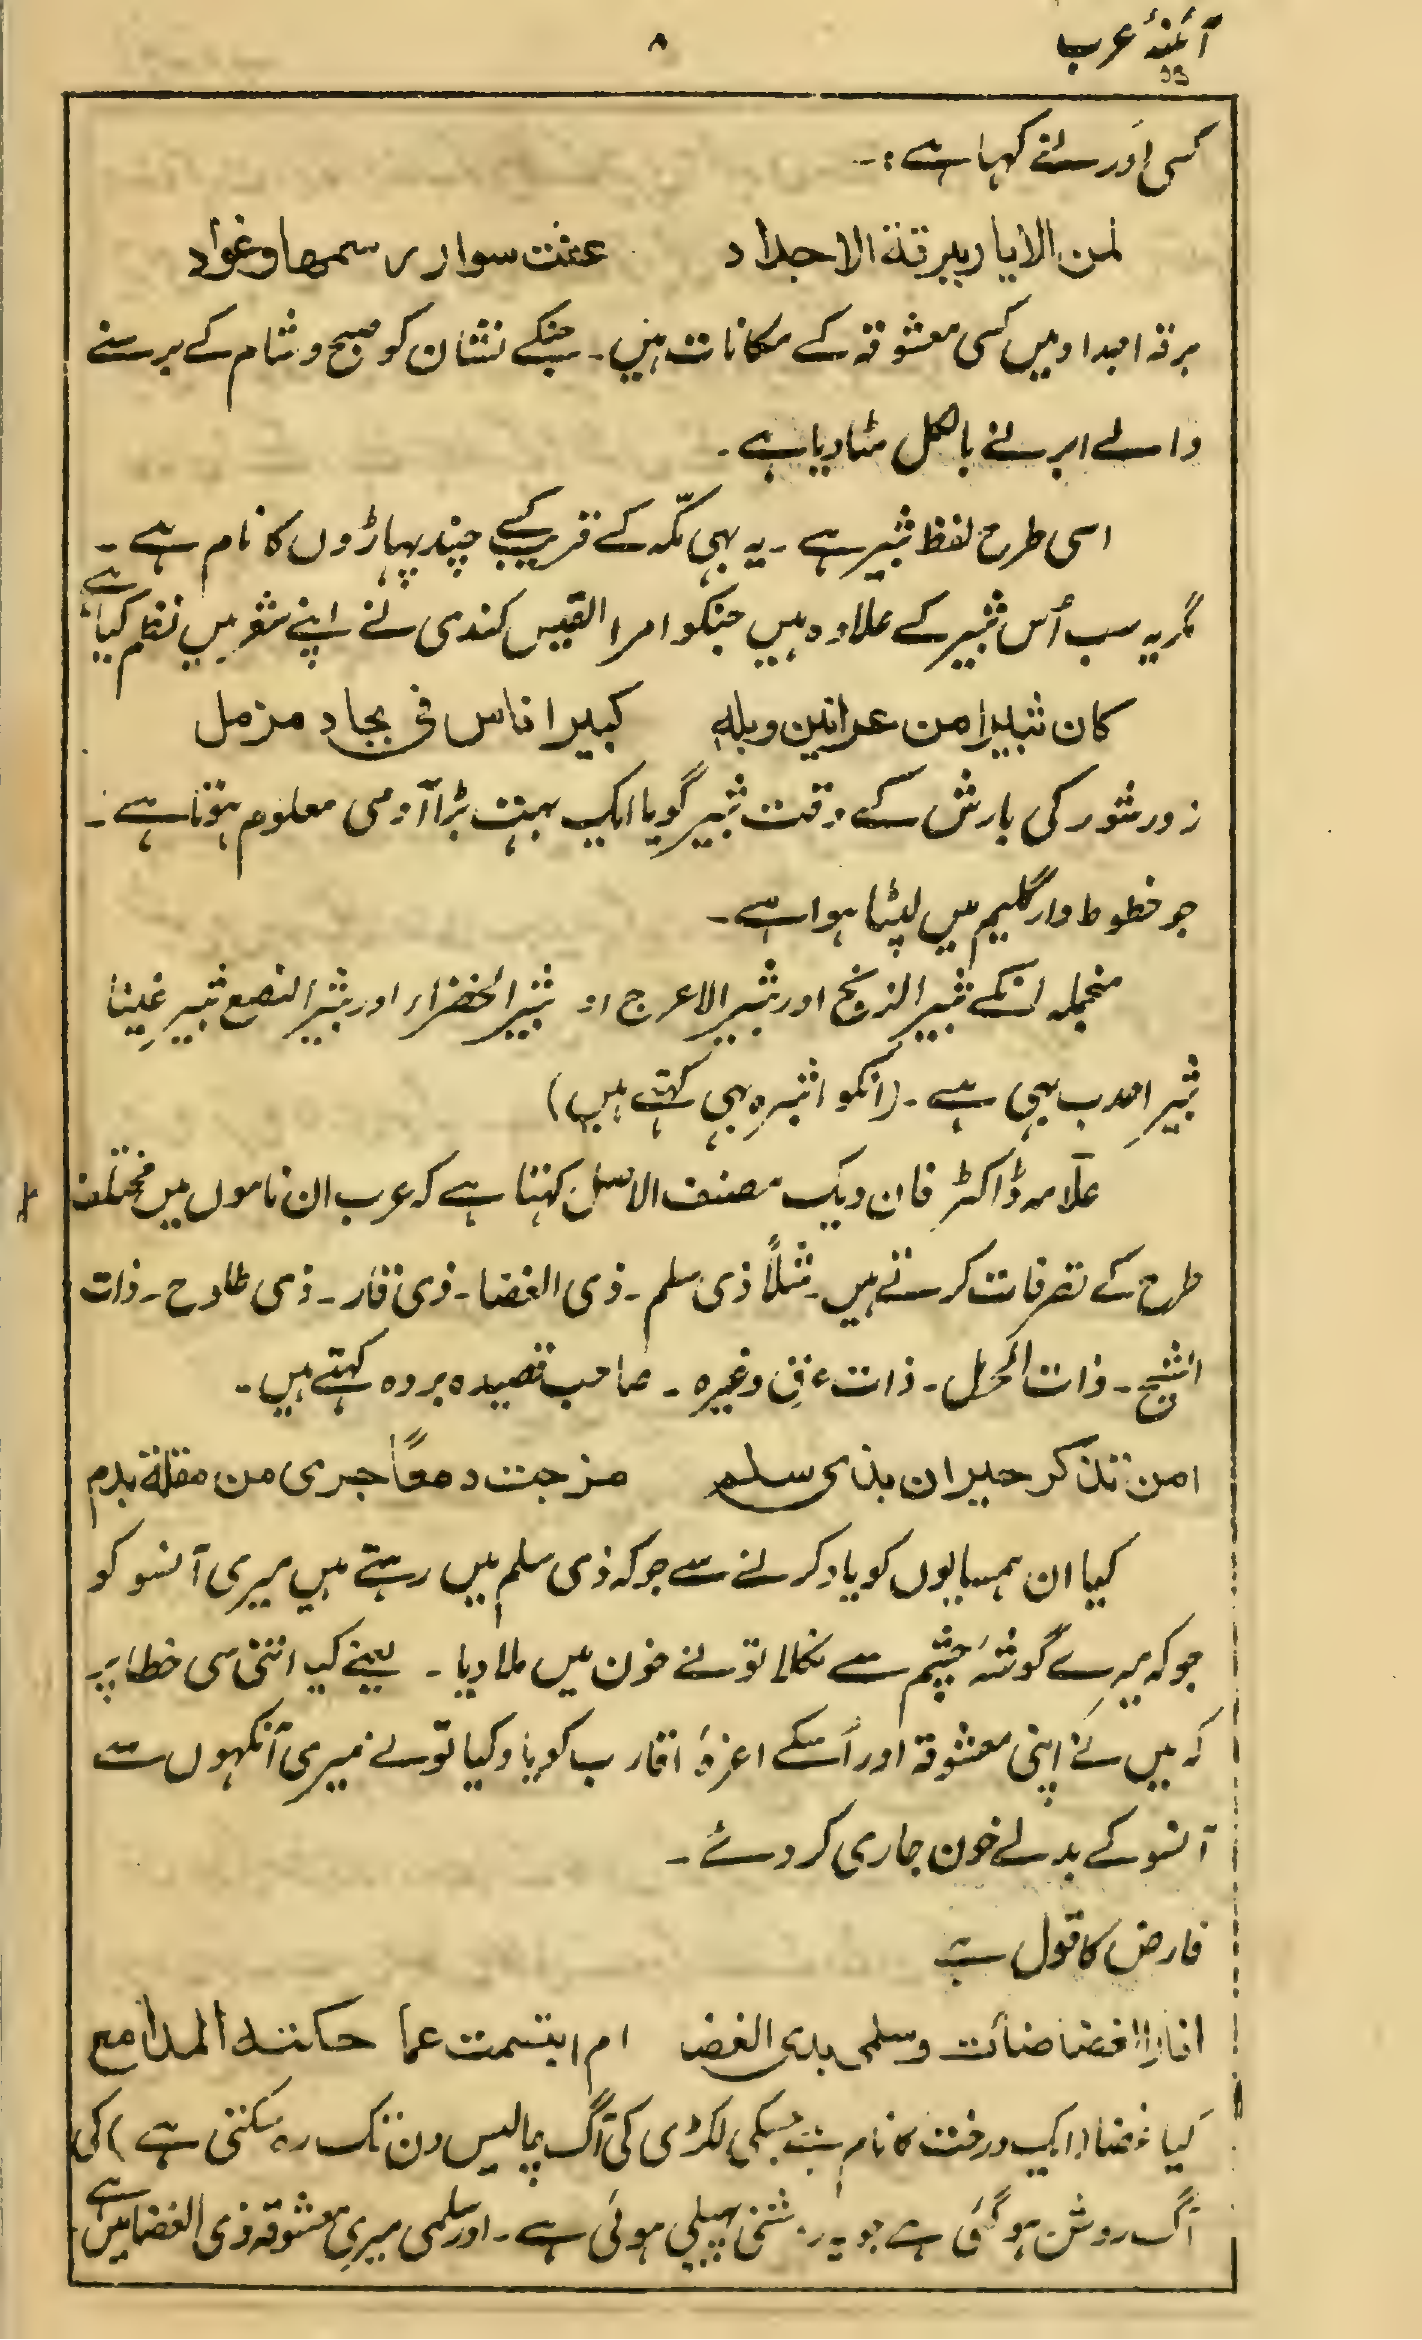 آئینۂ عرب
۸
کسی اور نے کہا ہے :۔
لمن الدیار ببرقة الاجداد عفت سوار رسمها وغواد
برقہ اجداد میں کسی معشوقہ کے مکانات ہیں۔ جنکے نشان کو صبح و شام کے برسنے
والے ابر نے بالکل مٹا دیا ہے۔
اسی طرح لفظ ثبیر ہے ۔ یہ بہی مکّہ کے قریب کے چند پہاڑوں کا نام ہے ۔
مگر یہ سب اُس ثبیر کے علاوہ ہیں جنکو امرا القیس کندی نے اپنے شعر میں نظم کیا ہے
کان ثبیرا من عرانین وبله کبیر اناس فی بجاد مزمل
زور شور کی بارش کے وقت ثبیر گویا ایک بہت بڑا آدمی معلوم ہوتا ہے ۔
جو خطوط دار گلیم میں لپٹا ہوا ہے ۔
منجملہ انکے ثبیر الزنج اور ثبیر الاعرج او ثبیر الخضراء اور ثبیر النصع ثبیرِ غینا
ثبیرِ احدب بہی ہے ۔ (انکو اثبرہ بہی کہتے ہیں)
علّامہ ڈاکٹر فان دیک مصنف الاصل کہتا ہے کہ عرب ان ناموں میں مختلف
طرح کے تصرفات کرتے ہیں۔ مثلاً ذی سلم ۔ ذی الغضا ۔ ذی قار ۔ ذی طلوح ۔ ذات
الشیح ۔ ذات الحرمل ۔ ذات عرق وغیرہ ۔ صاحب قصیدہ بردہ کہتے ہیں ۔
امن تذکر جیران بذی سلم مزجت دمعاً جری من مقلة بدم
کیا ان ہمسایوں کو یاد کرنے سے جو کہ ذی سلم میں رہتے ہیں میری آنسو کو
جو کہ میرے گوشۂ چشم سے نکلا تو نے خون میں ملا دیا ۔ یعنے کیا اتنی سی خطا پر
کہ میں نے اپنی معشوقہ اور اُسکے اعزہ اقارب کو یاد کیا تو نے میری آنکہوں سے
آنسو کے بدلے خون جاری کر دئے ۔
فارض کا قول ہے
انار الغضا ضائت وسلمی بذی الغضا ام ابتسمت عما حکته المدامع
کیا غضا (ایک درخت کا نام ہے جسکی لکڑی کی آگ چالیس دن تک رہ سکتی ہے) کی
آگ روشن ہو گئی ہے جو یہ روشنی پہیلی ہوئی ہے ۔ اور سلمی میری معشوقہ ذی الغضا میں ہے